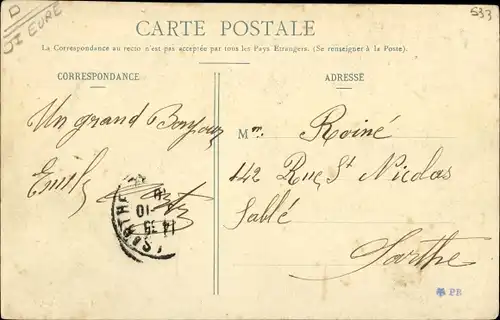 D
27 EURE
533
CARTE POSTALE
La Correspondance au recto n'est pas acceptée par tous les Pays Etrangers. (Se renseigner à la Poste).
CORRESPONDANCE
ADRESSE
Un grand Bonjour
Emile
Mr. Roiné
42 Rue St Nicolas
Sablé
Sarthe
SARTHE
14 35
10
PR